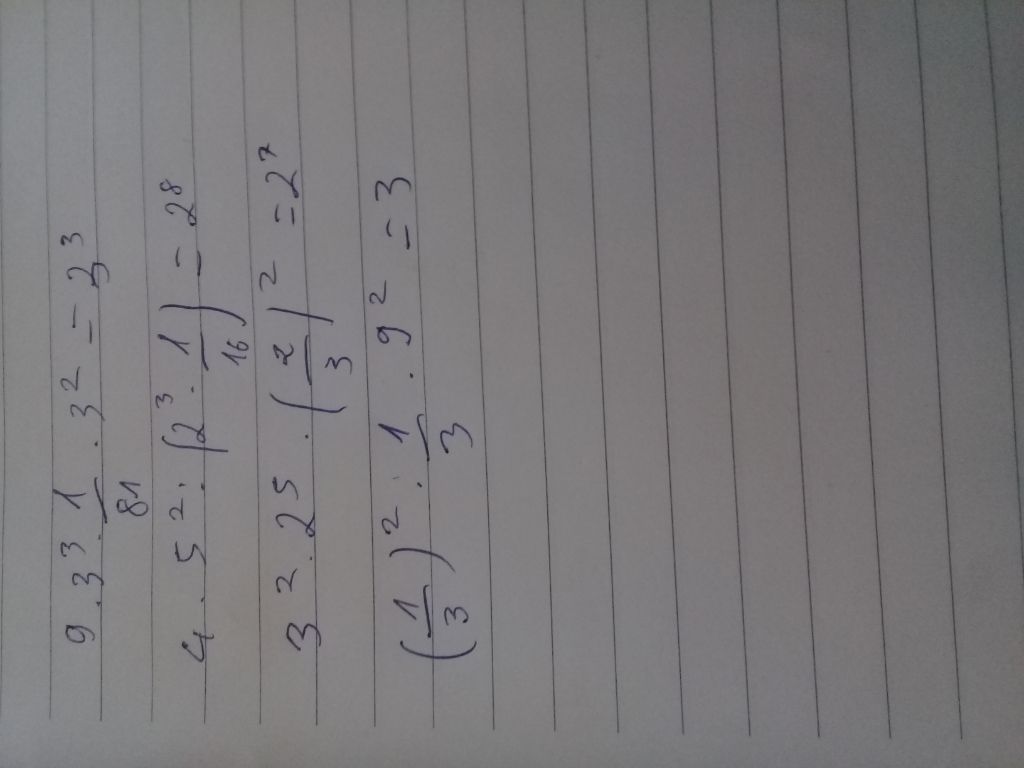 9 · 3³ · 1/81 · 3² = 3³
4 · 5² : (2³ · 1/16) = 2⁸
3² · 2⁵ · (2/3)² = 2⁷
(1/3)² · 1/3 · 9² = 3